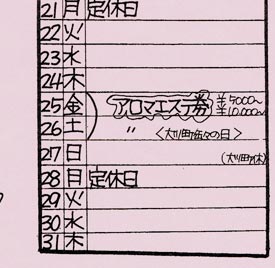 21 月 定休日
22 火
23 水
24 木
25 金 アロマエステ券 ¥5000〜
¥10,000〜
26 土 〃
の日〉
27 日
28 月 定休日
29 火
30 水
31 木